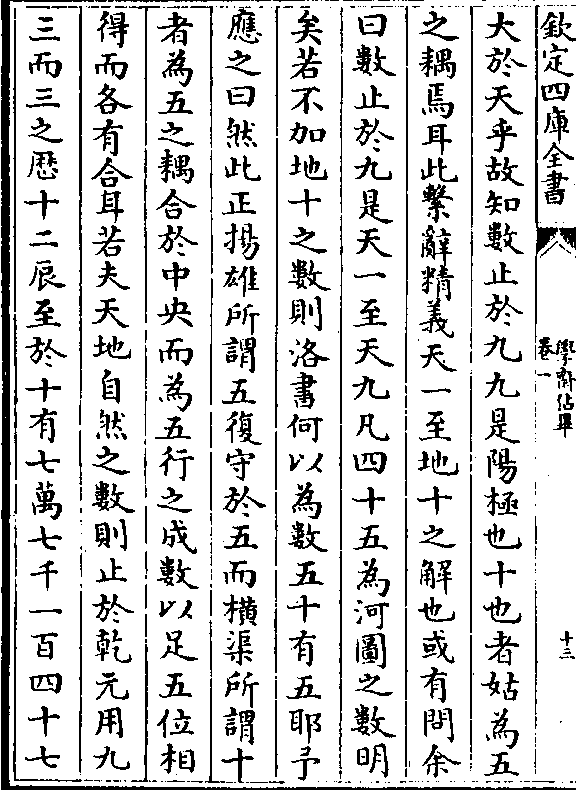 欽定四庫全書
學齋佔畢
卷一
十三
大於天乎故知數止於九九是陽極也十也者姑為五
之耦焉耳此繫辭精義天一至地十之解也或有問余
曰數止於九是天一至天九凡四十五為河圖之數明
矣若不加地十之數則洛書何以為數五十有五耶予
應之曰然此正揚雄所謂五復守於五而橫渠所謂十
者為五之耦合於中央而為五行之成數以足五位相
得而各有合耳若夫天地自然之數則止於乾元用九
三而三之歴十二辰至於十有七萬七千一百四十七